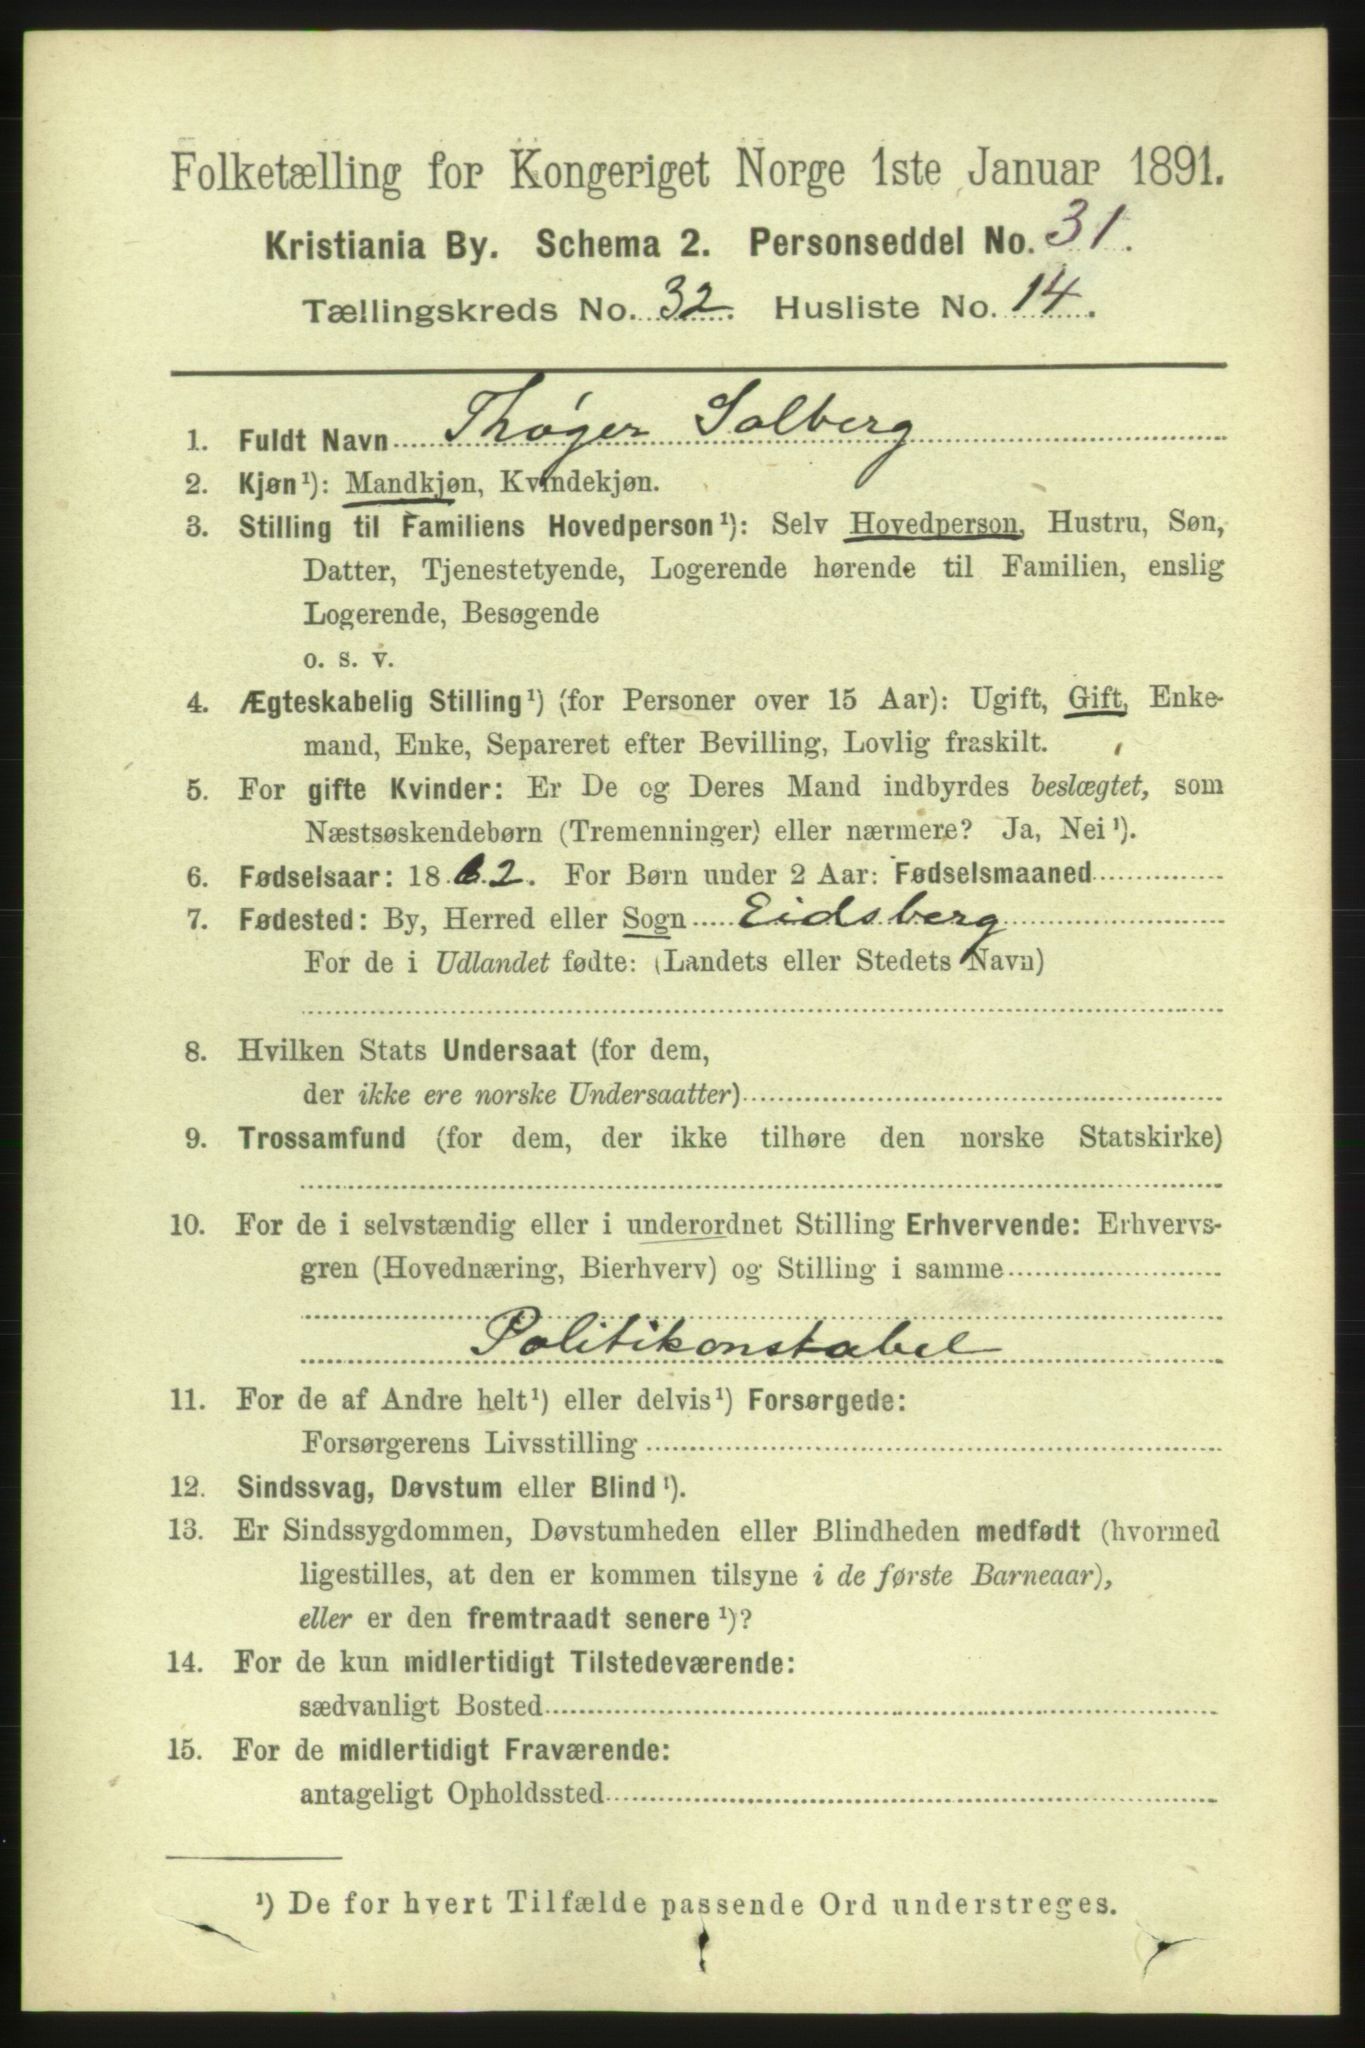 Folketælling for Kongeriget Norge 1ste Januar 1891.
Kristiania By. Schema 2. Personseddel No. 31.
Tællingskreds No. 32. Husliste No. 14.
1. Fuldt Navn Thøger Solberg
2. Kjøn¹): Mandkjøn, Kvindekjøn.
3. Stilling til Familiens Hovedperson¹): Selv Hovedperson, Hustru, Søn,
Datter, Tjenestetyende, Logerende hørende til Familien, enslig
Logerende, Besøgende
o. s. v.
4. Ægteskabelig Stilling¹) (for Personer over 15 Aar): Ugift, Gift, Enke-
mand, Enke, Separeret efter Bevilling, Lovlig fraskilt.
5. For gifte Kvinder: Er De og Deres Mand indbyrdes beslægtet, som
Næstsøskendebørn (Tremenninger) eller nærmere? Ja, Nei¹).
6. Fødselsaar: 1862. For Børn under 2 Aar: Fødselsmaaned
7. Fødested: By, Herred eller Sogn Eidsberg
For de i Udlandet fødte: (Landets eller Stedets Navn)
8. Hvilken Stats Undersaat (for dem,
der ikke ere norske Undersaatter)
9. Trossamfund (for dem, der ikke tilhøre den norske Statskirke)
10. For de i selvstændig eller i underordnet Stilling Erhvervende: Erhvervs-
gren (Hovednæring, Bierhverv) og Stilling i samme
Politikonstabel
11. For de af Andre helt¹) eller delvis¹) Forsørgede:
Forsørgerens Livsstilling
12. Sindssvag, Døvstum eller Blind¹).
13. Er Sindssygdommen, Døvstumheden eller Blindheden medfødt (hvormed
ligestilles, at den er kommen tilsyne i de første Barneaar),
eller er den fremtraadt senere¹)?
14. For de kun midlertidigt Tilstedeværende:
sædvanligt Bosted
15. For de midlertidigt Fraværende:
antageligt Opholdssted
¹) De for hvert Tilfælde passende Ord understreges.